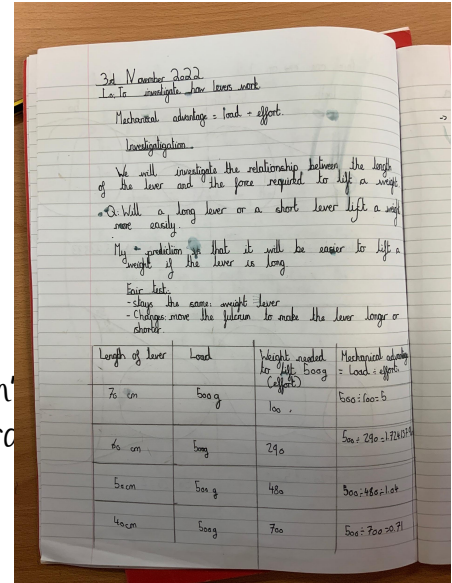 3rd November 2022
L.o. To investigate how levers work
Mechanical advantage = load ÷ effort.
Investigatigation
We will investigate the relationship between the length
of the lever and the force required to lift a weight
Q: Will a long lever or a short lever lift a weight
more easily.
My prediction is that it will be easier to lift a
weight if the lever is long
Fair test:
- stays the same: weight lever
- Changes: move the fulcrum to make the lever longer or
shorter
Length of lever | Load | Weight needed to lift 500g (effort) | Mechanical advantage = Load ÷ effort.
70 cm | 500g | 100. | 500÷100=5
60 cm | 500g | 290 | 500 ÷ 290 =
50cm | 500g | 480 | 500÷480=1.04
40cm | 500g | 700 | 500÷700=0.71